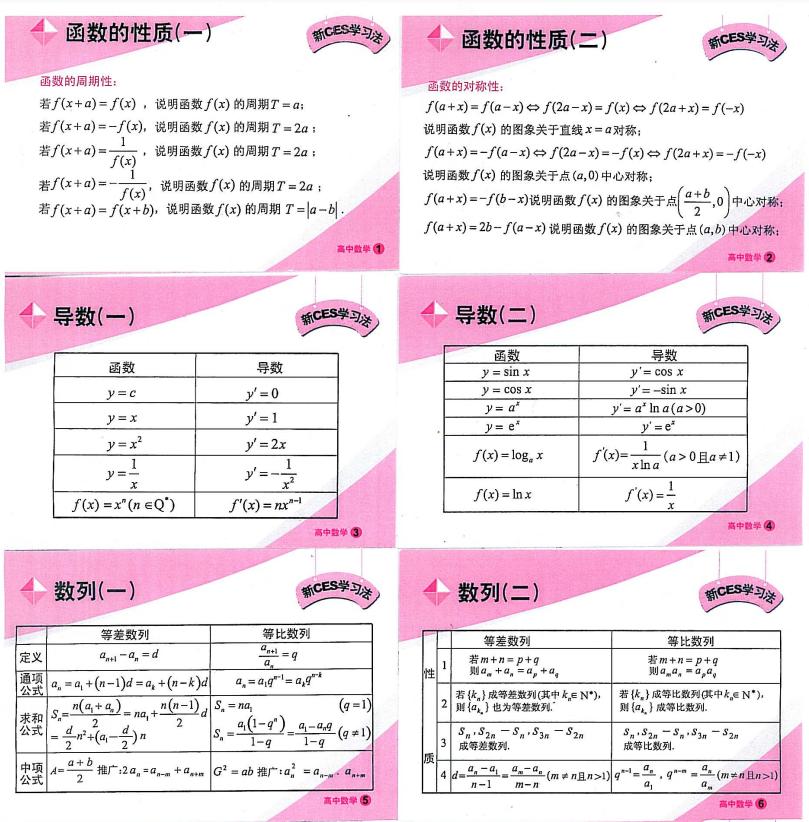 函数的性质(一)
新CES学习法
函数的周期性:
若f(x+a)=f(x)，说明函数f(x)的周期T=a;
若f(x+a)=-f(x)，说明函数f(x)的周期T=2a;
若f(x+a)=1/f(x)，说明函数f(x)的周期T=2a;
若f(x+a)=-1/f(x)，说明函数f(x)的周期T=2a;
若f(x+a)=f(x+b)，说明函数f(x)的周期T=|a-b|.
高中数学①
函数的性质(二)
新CES学习法
函数的对称性:
f(a+x)=f(a-x)⇔f(2a-x)=f(x)⇔f(2a+x)=f(-x)
说明函数f(x)的图象关于直线x=a对称;
f(a+x)=-f(a-x)⇔f(2a-x)=-f(x)⇔f(2a+x)=-f(-x)
说明函数f(x)的图象关于点(a,0)中心对称;
f(a+x)=-f(b-x)说明函数f(x)的图象关于点((a+b)/2,0)中心对称;
f(a+x)=2b-f(a-x)说明函数f(x)的图象关于点(a,b)中心对称;
高中数学②
导数(一)
新CES学习法
函数 导数
y=c y′=0
y=x y′=1
y=x² y′=2x
y=1/x y′=-1/x²
f(x)=xⁿ(n∈Q*) f′(x)=nxⁿ⁻¹
高中数学③
导数(二)
新CES学习法
函数 导数
y=sin x y′=cos x
y=cos x y′=-sin x
y=aˣ y′=aˣ ln a(a>0)
y=eˣ y′=eˣ
f(x)=logₐ x f′(x)=1/(x ln a)(a>0且a≠1)
f(x)=ln x f′(x)=1/x
高中数学④
数列(一)
新CES学习法
等差数列 等比数列
定义 aₙ₊₁-aₙ=d aₙ₊₁/aₙ=q
通项公式 aₙ=a₁+(n-1)d=aₖ+(n-k)d aₙ=a₁qⁿ⁻¹=aₖqⁿ⁻ᵏ
求和公式 Sₙ=n(a₁+aₙ)/2=na₁+n(n-1)/2 d Sₙ=na₁ (q=1)
=d/2 n²+(a₁-d/2)n Sₙ=a₁(1-qⁿ)/(1-q)=(a₁-aₙq)/(1-q)(q≠1)
中项公式 A=(a+b)/2 推广:2aₙ=aₙ₋ₘ+aₙ₊ₘ G²=ab 推广:aₙ²=aₙ₋ₘ·aₙ₊ₘ
高中数学⑤
数列(二)
新CES学习法
等差数列 等比数列
性质
1 若m+n=p+q 若m+n=p+q
则aₘ+aₙ=aₚ+a_q 则aₘaₙ=aₚa_q
2 若{kₙ}成等差数列(其中kₙ∈N*), 若{kₙ}成等比数列(其中kₙ∈N*),
则{a_kₙ}也为等差数列. 则{a_kₙ}成等比数列.
3 Sₙ,S₂ₙ-Sₙ,S₃ₙ-S₂ₙ Sₙ,S₂ₙ-Sₙ,S₃ₙ-S₂ₙ
成等差数列. 成等比数列.
4 d=(aₙ-a₁)/(n-1)=(aₘ-aₙ)/(m-n)(m≠n且n>1) qⁿ⁻¹=aₙ/a₁,qⁿ⁻ᵐ=aₙ/aₘ(m≠n且n>1)
高中数学⑥